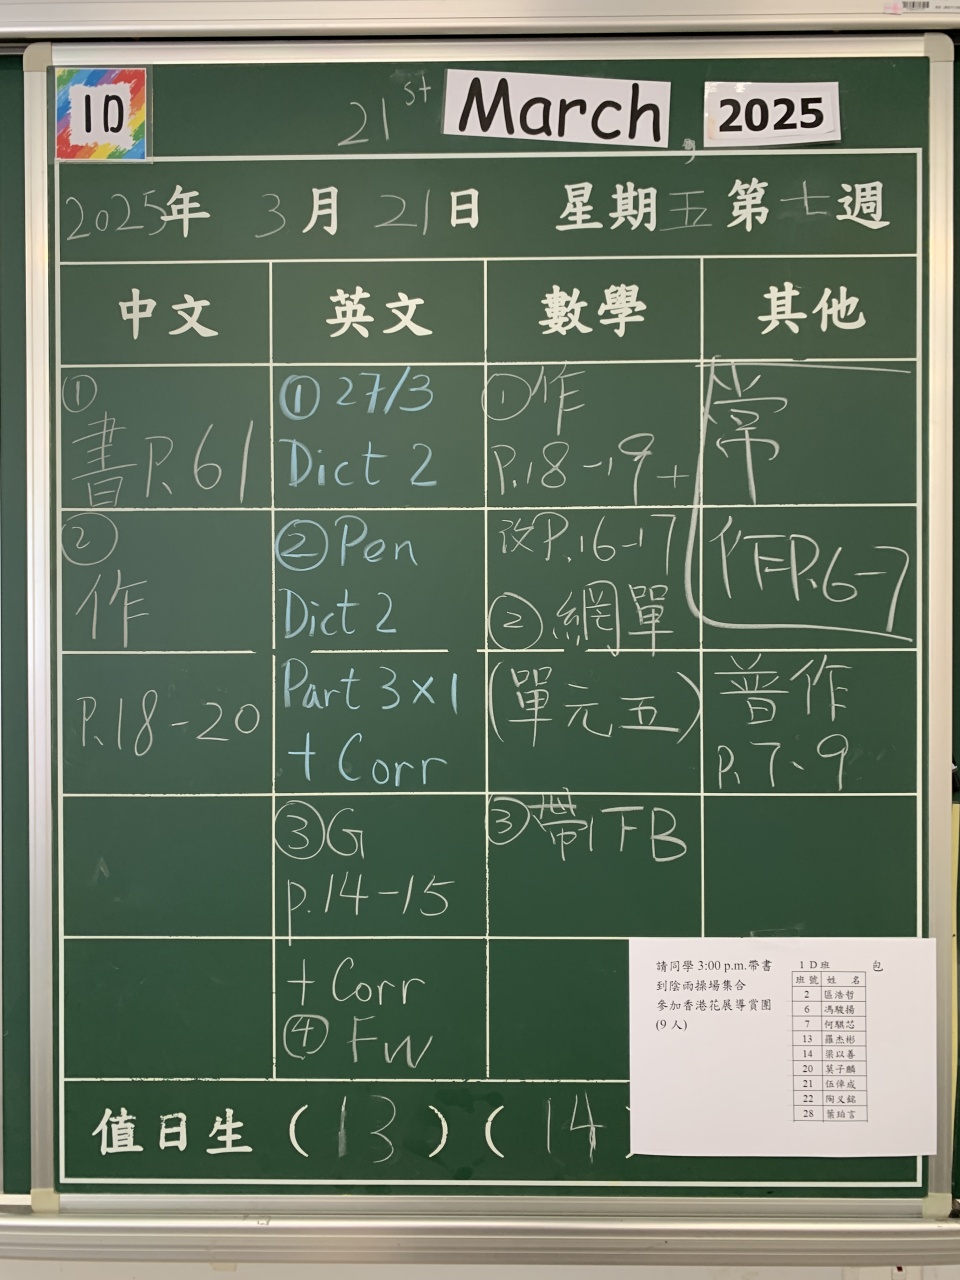 1D
21st March, 2025
2025年 3月21日 星期五第七週
中文 英文 數學 其他
①
書P.61
②
作
P.18-20
① 27/3
Dict 2
② Pen
Dict 2
Part 3×1
+ Corr
③ G
p.14-15
+ Corr
④ FW
① 作
P.18-19+
改P.16-17
② 網單
(單元五)
③ 帶1FB
常
作P.6-7
普作
p.7、9
值日生 (13) (14
請同學 3:00 p.m.帶書包
到陰雨操場集合
參加香港花展導賞團
(9 人)
1 D 班
班號 姓 名
2 區浩哲
6 馮駿揚
7 何騏芯
13 羅杰彬
14 梁以善
20 莫子麟
21 伍倬成
22 陶旻銘
28 葉珀言